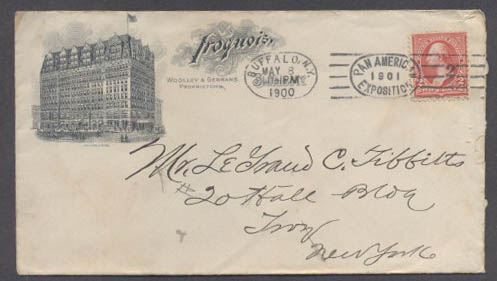 Iroquois.
WOOLLEY & GERRANS,
PROPRIETORS.
BUFFALO, N.Y.
MAY 8
PM
1900
PAN AMERICAN
1901
EXPOSITION
Mr. LeGrand C. Tibbits
# 20 Hall Bldg
Troy
New York